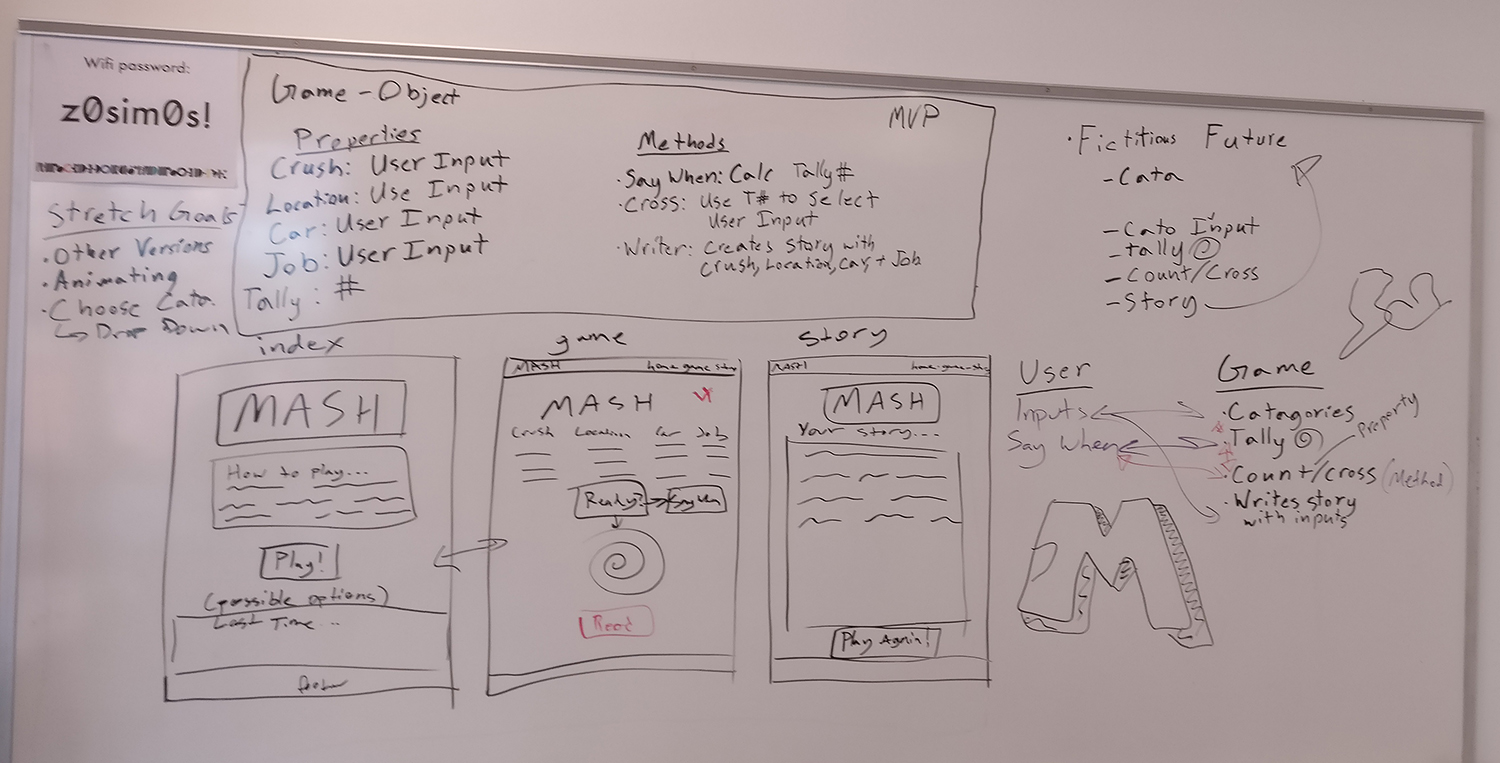 Wifi password:
z0sim0s!
Stretch Goals
• Other Versions
• Animating
• Choose Cata.
↳ Drop Down
Game - Object
MVP
Properties
Crush: User Input
Location: Use Input
Car: User Input
Job: User Input
Tally: #
Methods
• Say When: Calc Tally #
• Cross: Use T# to Select
User Input
• Writer: Creates Story with
Crush, Location, Car, + Job
• Fictitious Future
- Cata
- Cato Input
- tally
- Count/Cross
- Story
index
MASH
How to play...
Play!
(possible options)
Last Time...
footer
game
MASH
home game story
MASH
Crush Location Car Job
Ready? → Say When
Read
story
MASH
home game story
MASH
Your story...
Play Again!
User
Inputs
Say When
Game
• Catagories
• Tally
Property
• Count/Cross (Method)
• Writes story
with inputs
M